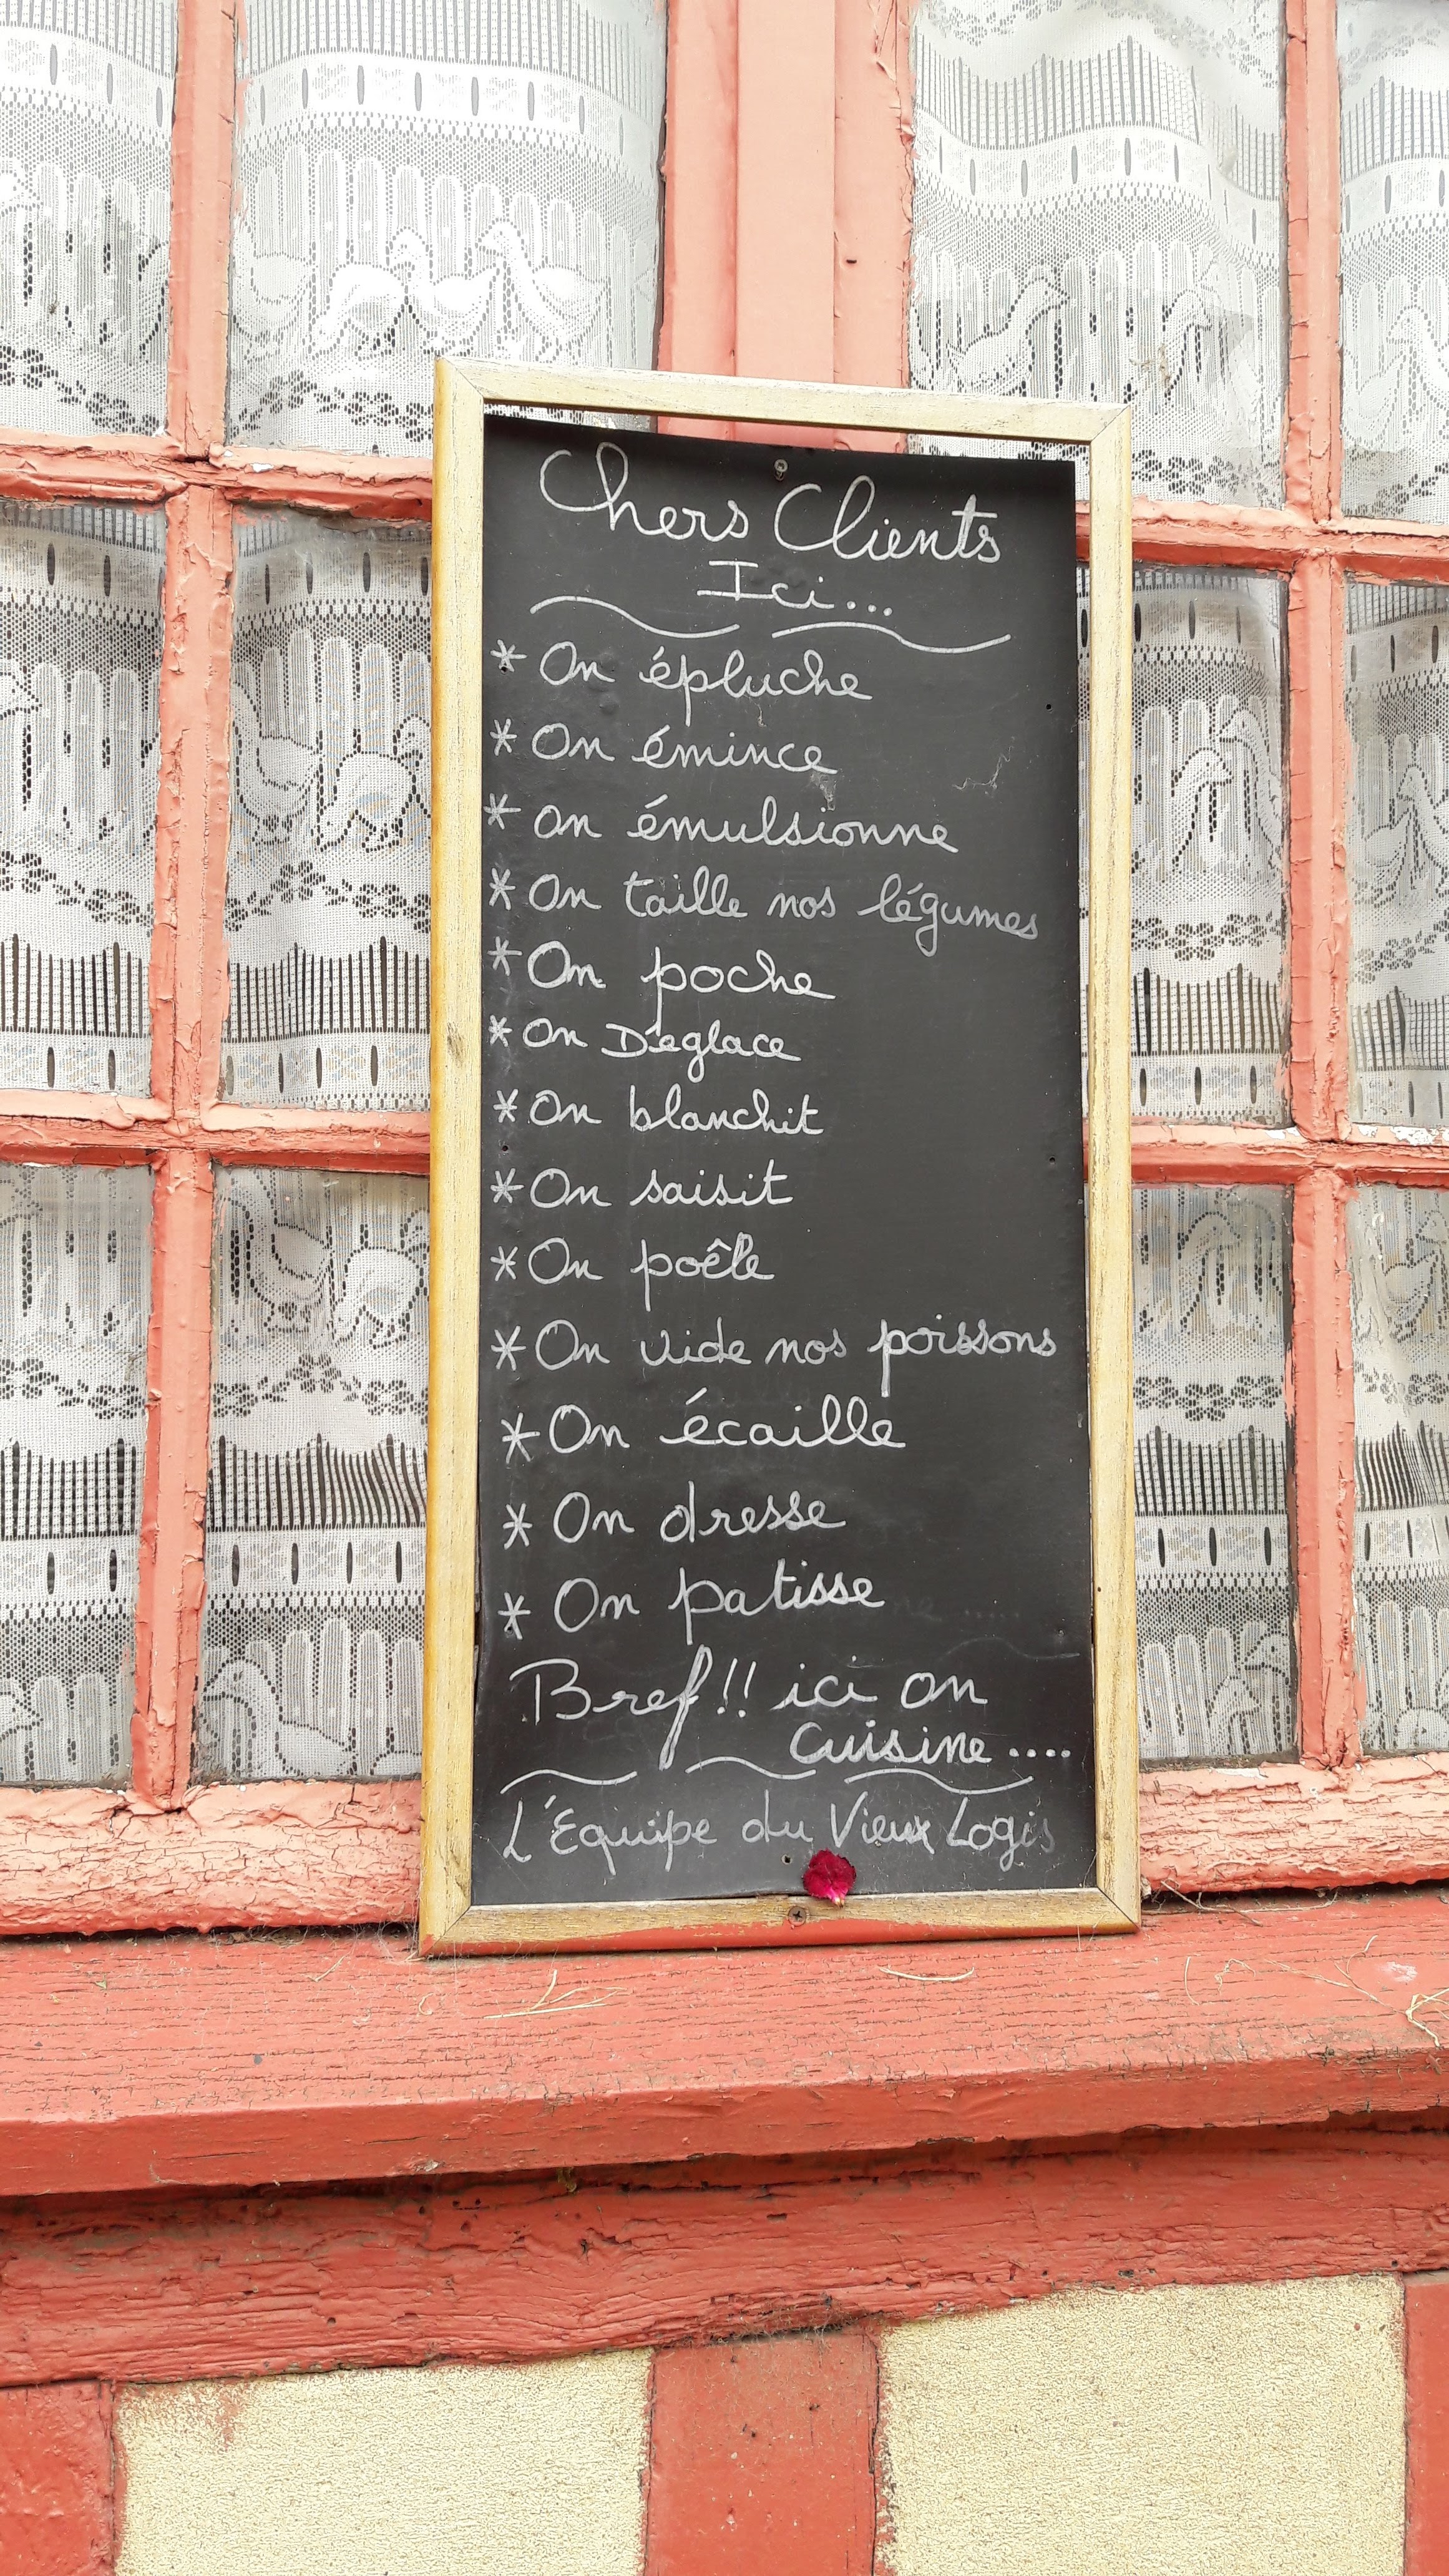 Chers Clients
Ici...
* On épluche
* On émince
* on émulsionne
* On taille nos légumes
* On poche
* On Déglace
* On blanchit
* On saisit
* On poêle
* On vide nos poissons
* On écaille
* On dresse
* On patisse
Bref!! ici on
Cuisine....
L'Equipe du Vieux Logis